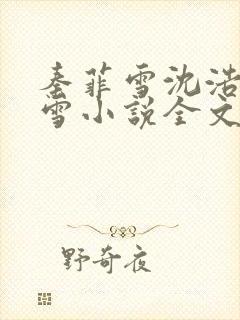 秦菲雪沈浩
雪小说全文
野奇夜